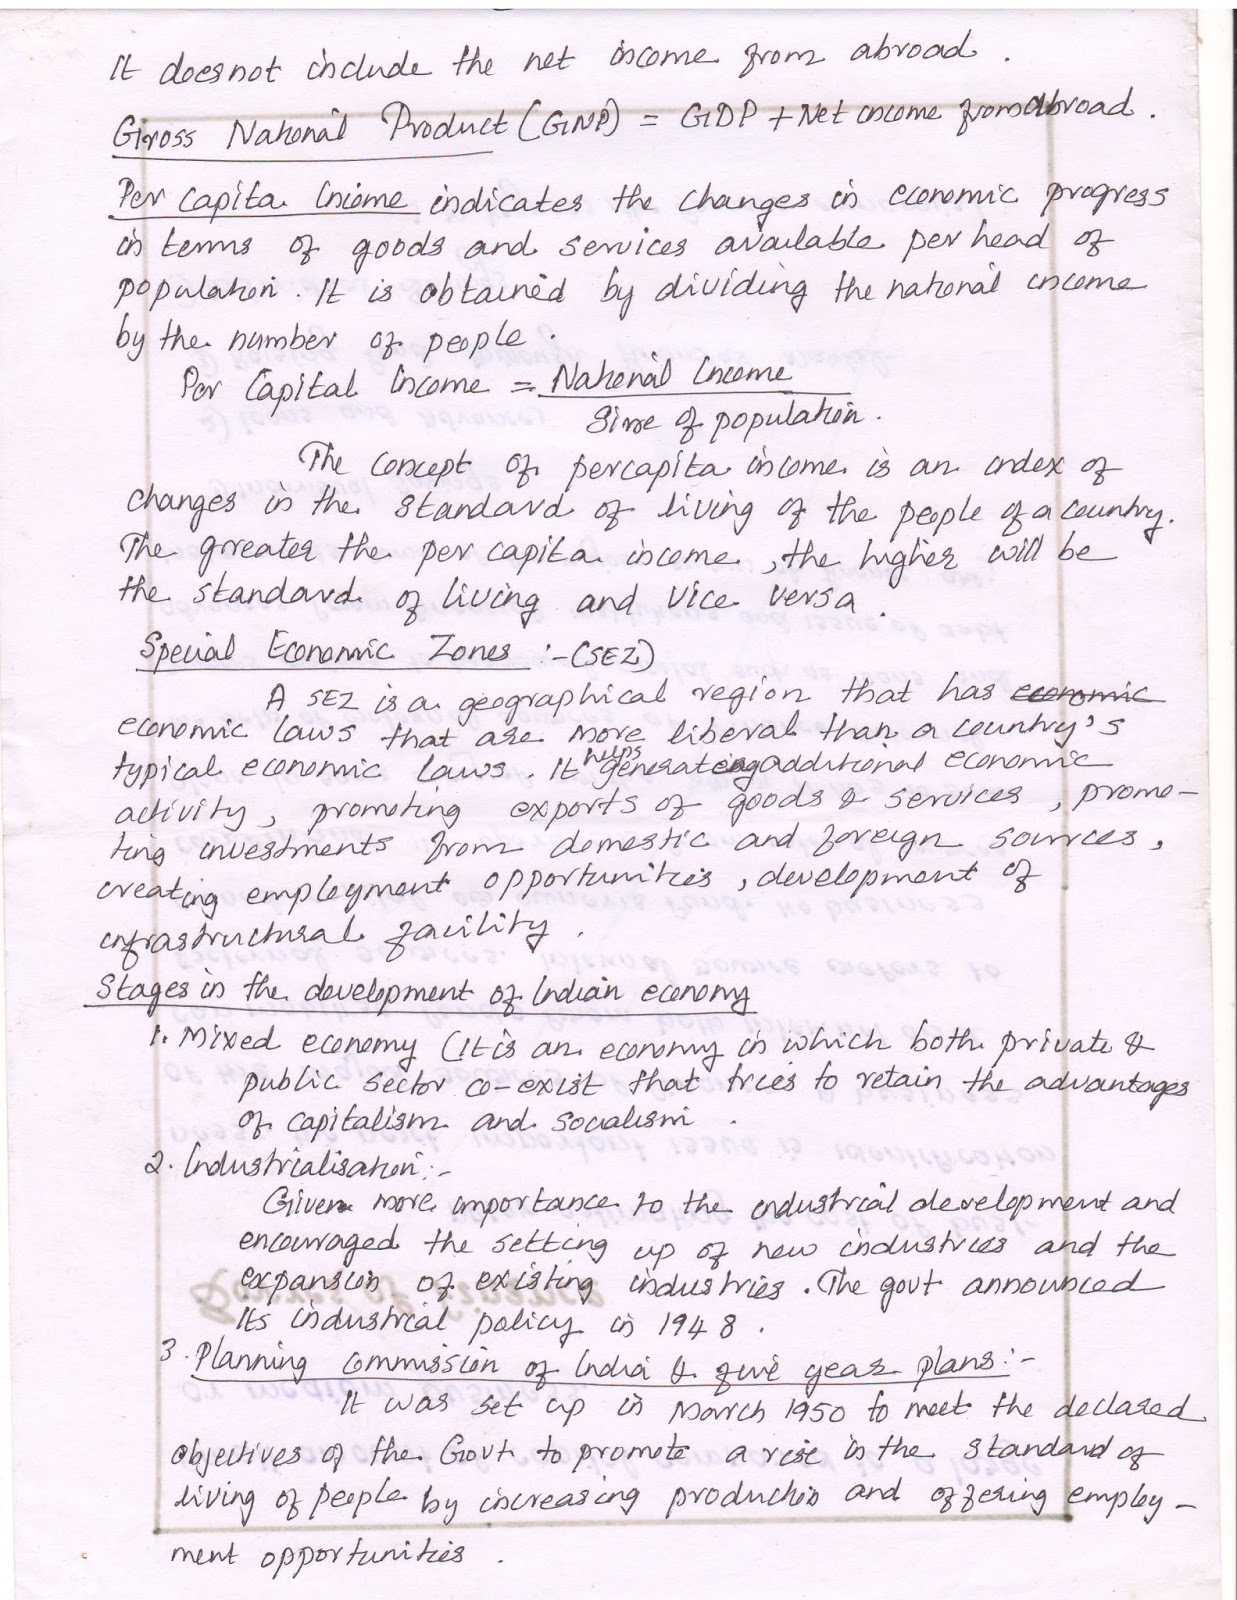 It does not include the net income from abroad.
Gross National Product (GNP) = GDP + Net income from abroad.
Per Capita Income indicates the changes in economic progress
in terms of goods and services available per head of
population. It is obtained by dividing the national income
by the number of people.
Per Capital Income = National Income
Size of population.
The concept of percapita income is an index of
changes in the standard of living of the people of a country.
The greater the per capita income, the higher will be
the standard of living and vice versa.
Special Economic Zones :- (SEZ)
A SEZ is a geographical region that has economic
economic laws that are more liberal than a country's
typical economic laws. It helps generating additional economic
activity, promoting exports of goods & services, promo-
ting investments from domestic and foreign sources,
creating employment opportunities, development of
infrastructural facility.
Stages in the development of Indian economy
1. Mixed economy (It is an economy in which both private &
public sector co-exist that tries to retain the advantages
of capitalism and socialism.
2. Industrialisation:-
Given more importance to the industrial development and
encouraged the setting up of new industries and the
expansion of existing industries. The govt announced
its industrial policy in 1948.
3. Planning commission of India & five year plans:-
It was set up in March 1950 to meet the declared
objectives of the Govt to promote a rise in the standard of
living of people by increasing production and offering employ-
ment opportunities.